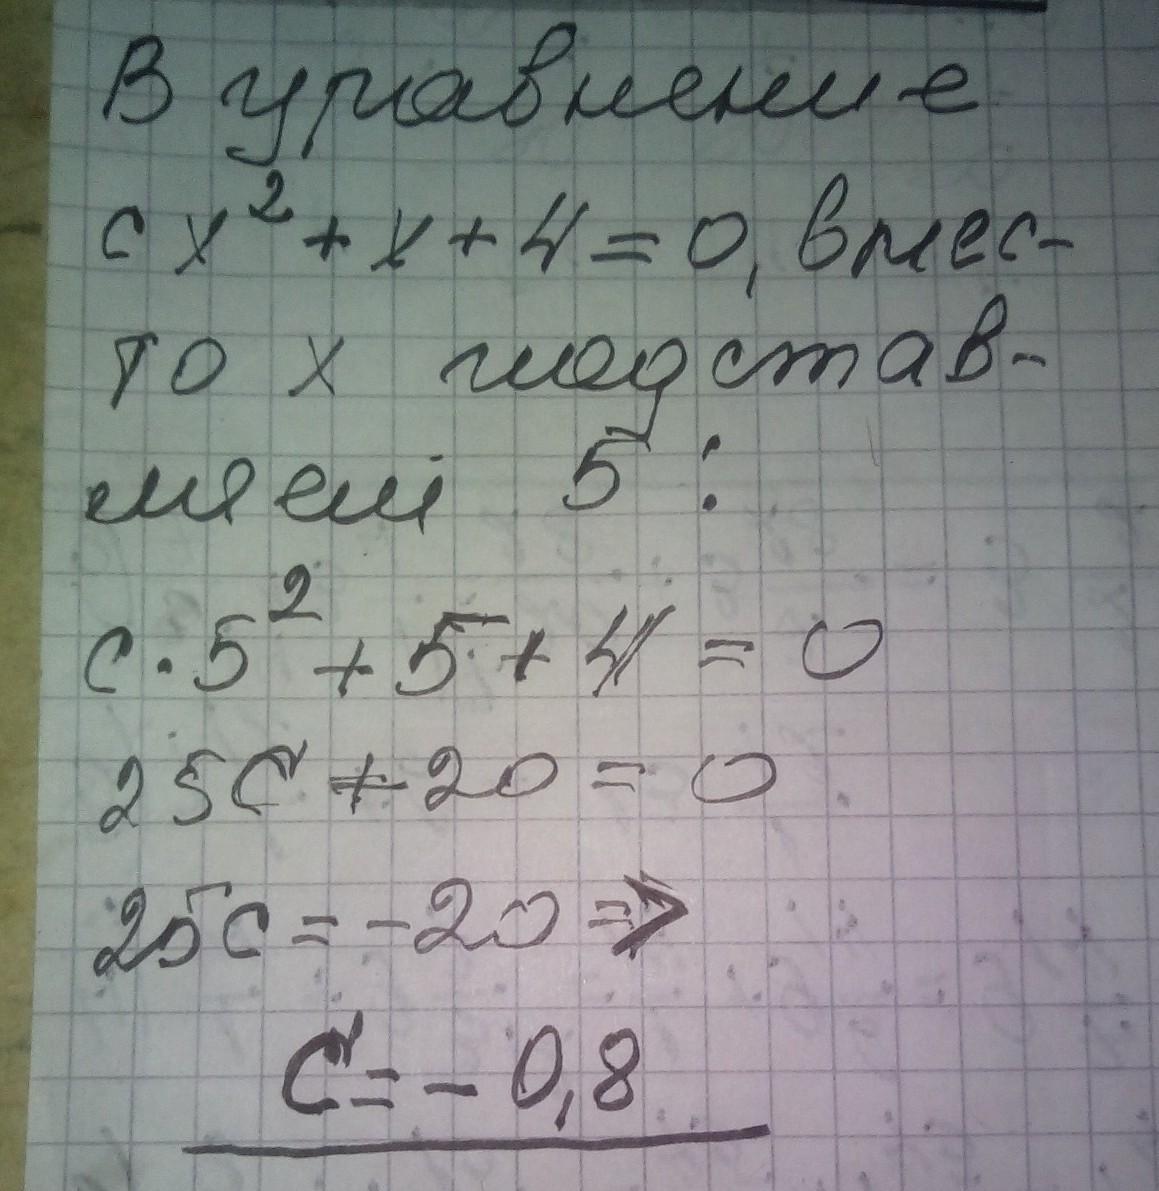 В уравнение
cx² + x + 4 = 0, вмес-
то x подстав-
ляем 5 :
c · 5² + 5 + 4 = 0
25c + 20 = 0
25c = -20 =>
c = - 0,8